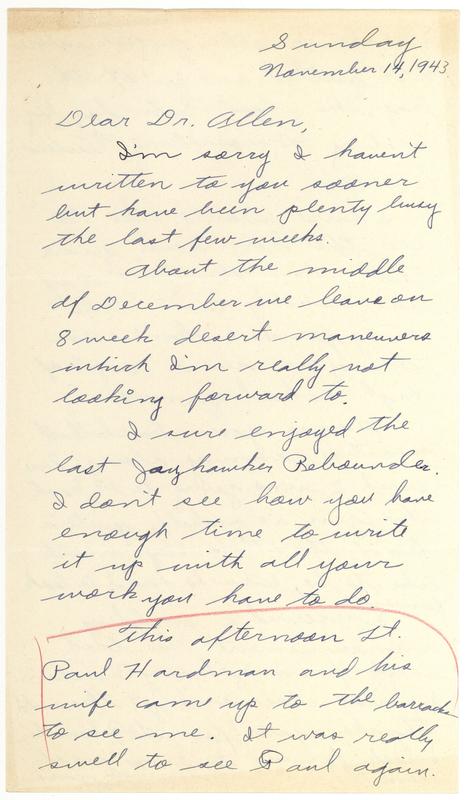 Sunday
November 14, 1943
Dear Dr. Allen,
I'm sorry I haven't
written to you sooner
but have been plenty busy
the last few weeks.
About the middle
of December we leave on
8 week desert maneuvers
which I'm really not
looking forward to.
I sure enjoyed the
last Jayhawker Rebounder.
I don't see how you have
enough time to write
it up with all your
work you have to do.
This afternoon Lt.
Paul Hardman and his
wife came up to the barracks
to see me. It was really
swell to see Paul again.